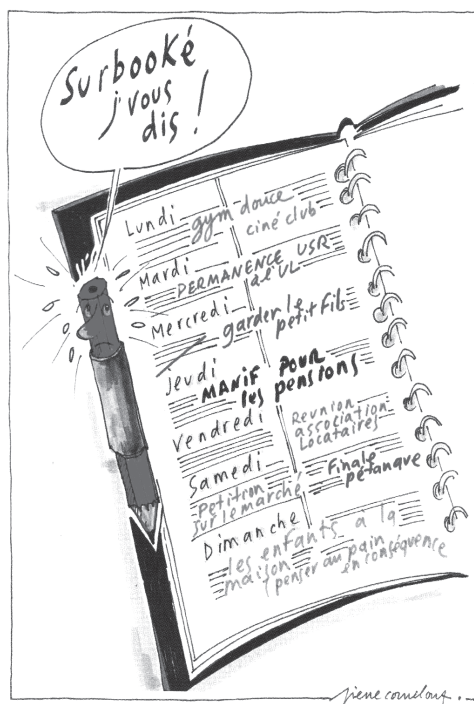 Surbooké
j'vous
dis !
Lundi
gym douce
ciné club
Mardi
PERMANENCE USR
à l'UL
Mercredi
garder le
petit fils
Jeudi
MANIF POUR
les pensions
Vendredi
Reunion
association
Locataires
Samedi
Petition
sur le marché
Finale
pétanque
Dimanche
les enfants à la
maison (penser au pain
en conséquence